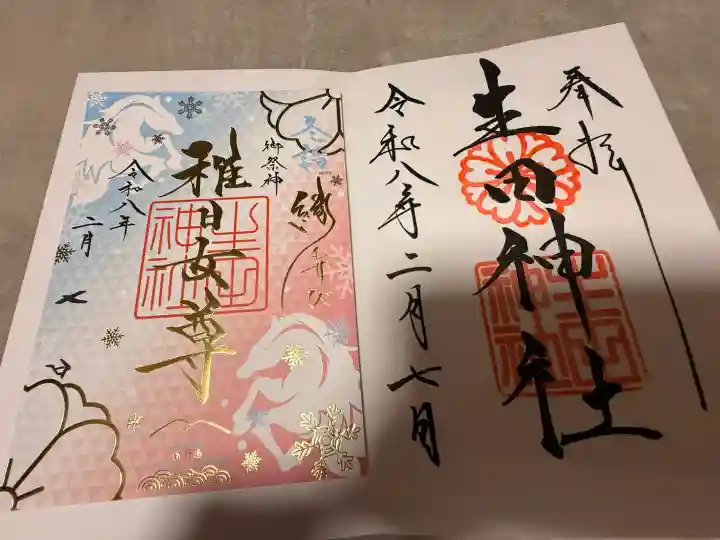 奉拝
生田神社
令和八年二月七日
生田神社
冬詣
縁むすび
御祭神
稚日女尊
生田神社
令和八年
二月
七
日